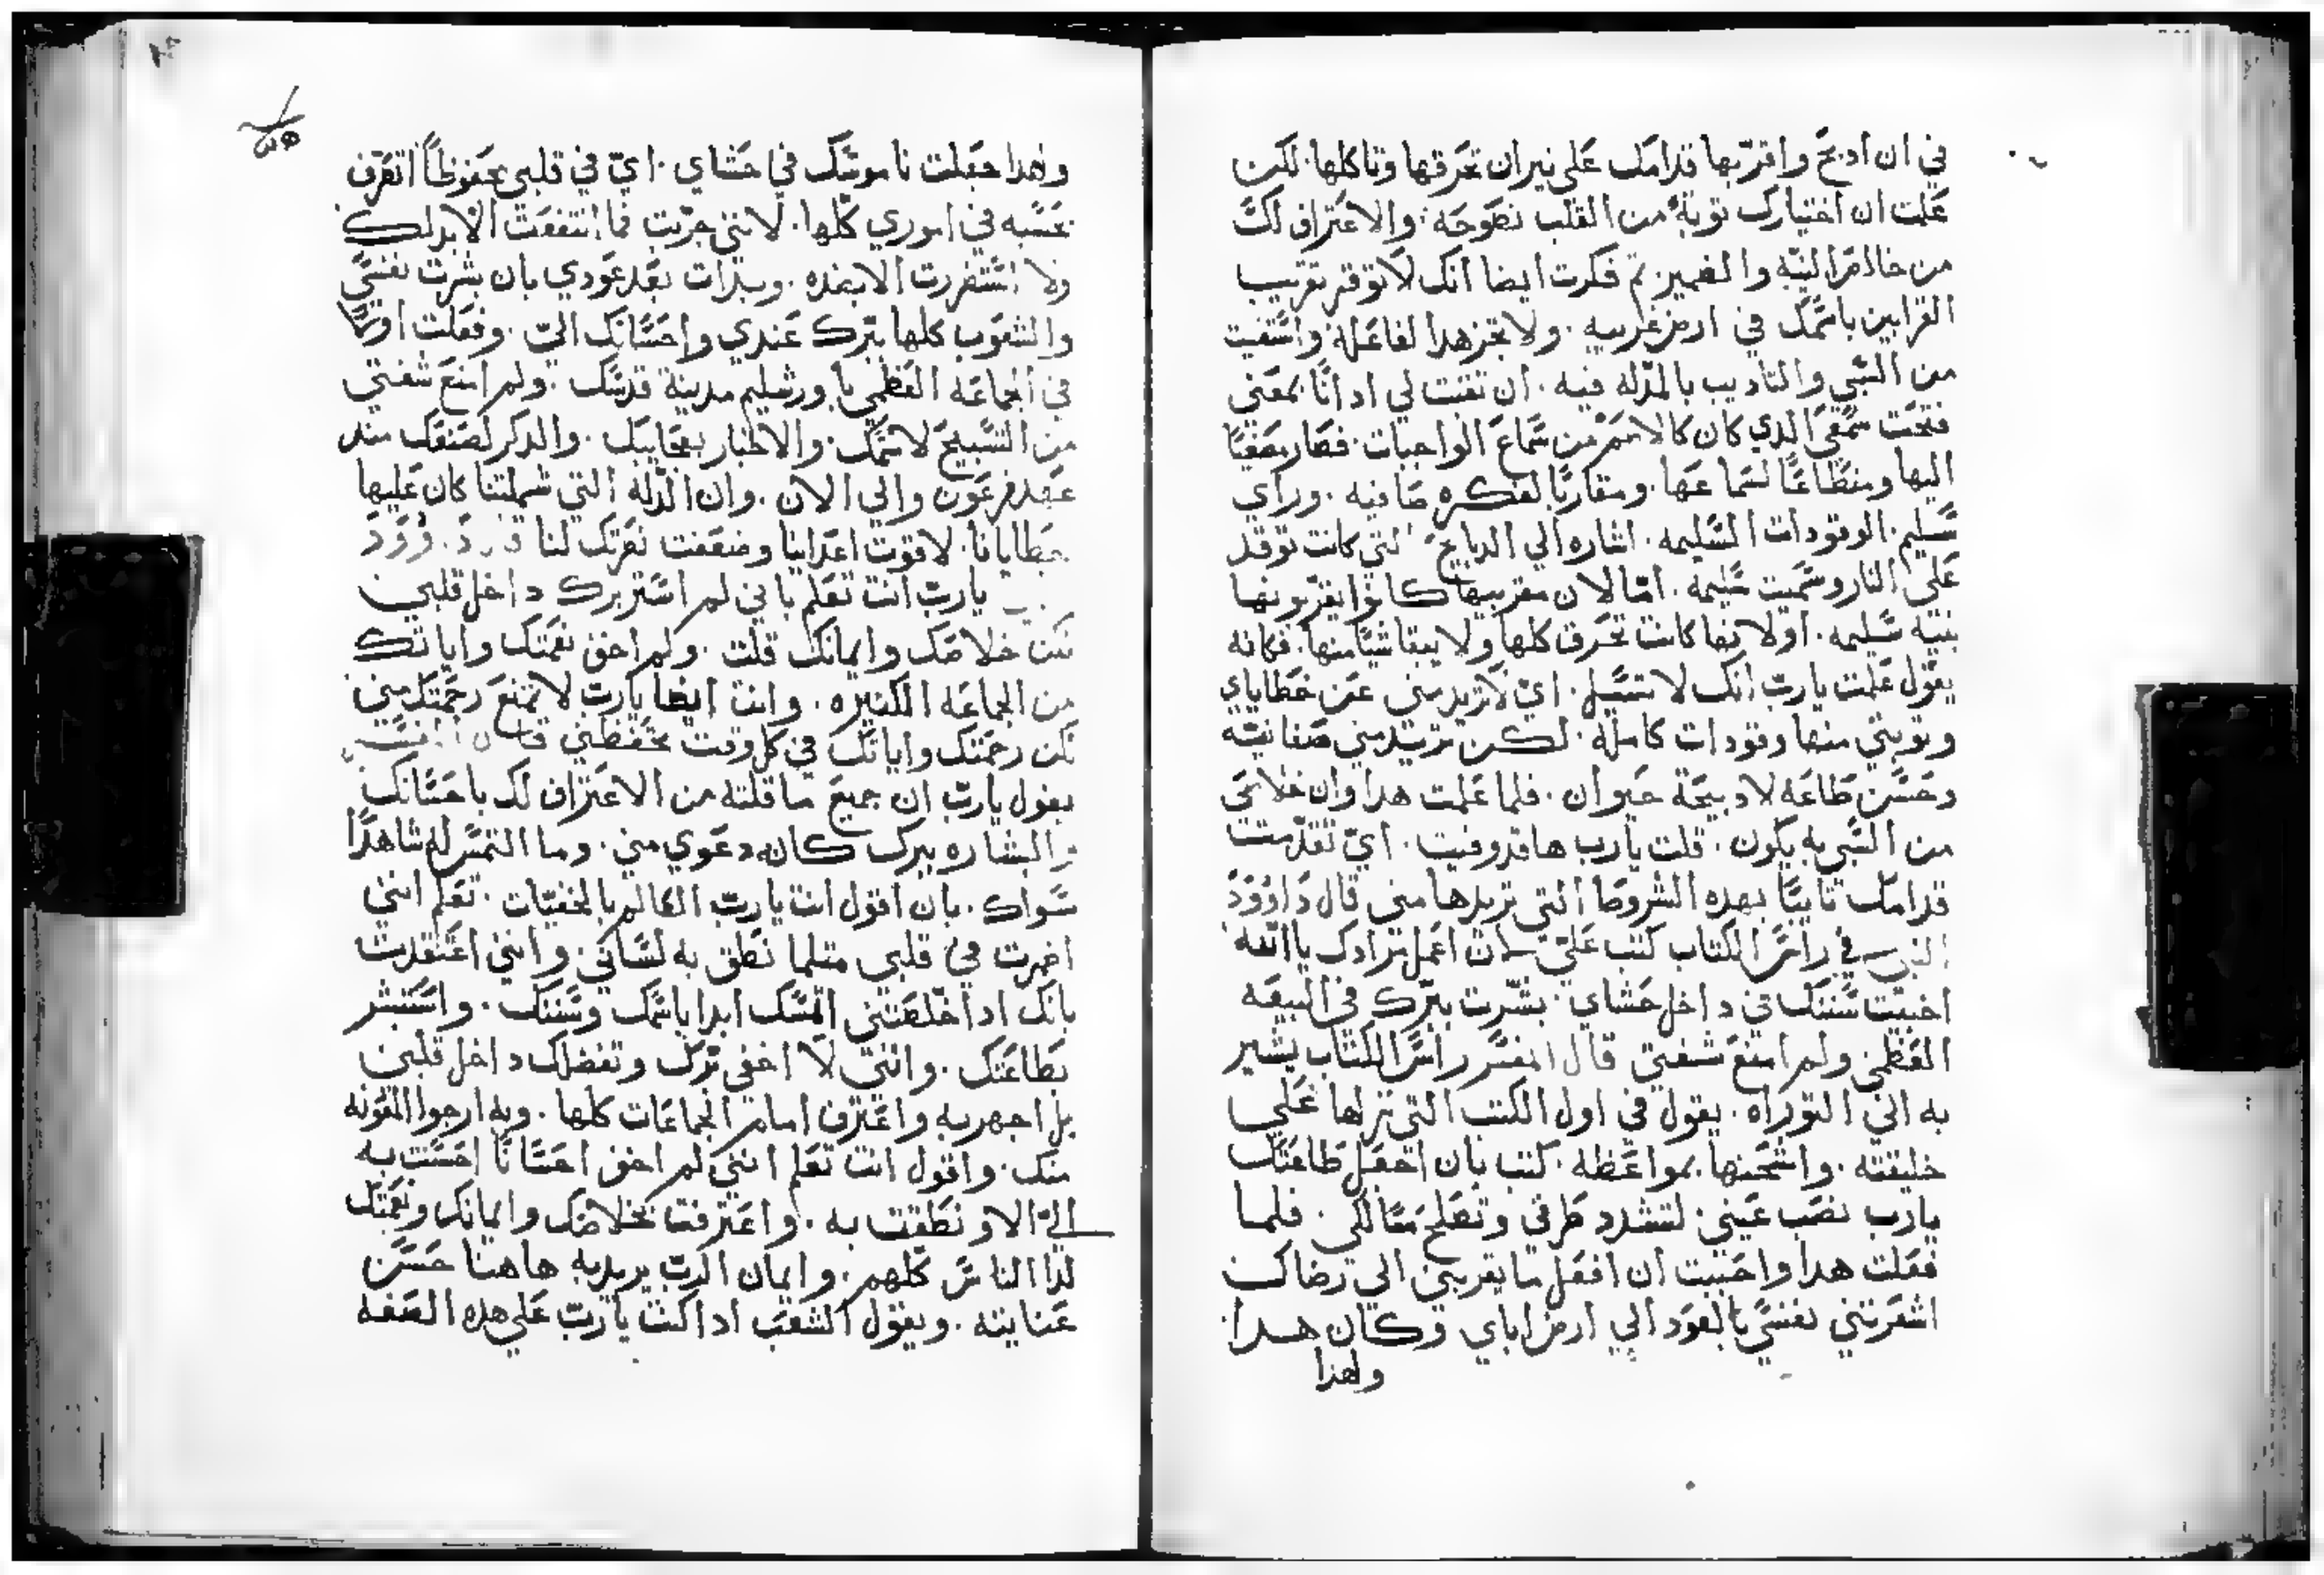 في ان ادبح واقربها قدامك على نيران تحرقها وتاكلها. لكن
علمت ان اختيارك توبة من القلب نصوحه. والاعتراف لك
من خالص النيه والضمير. تم فكرت ايضا انك لا توقر تقريب
القرابين باسمك في ارض غريبه. ولا تجز هدا لفاعله واستفيت
من السبي والتاديب بالمدله فيه. ان تقبت لي ادانًا بمعني
فتحت سمعي الدي كان كالاصم من سماع الواجبات. فصار مصغيًا
اليها ومنطاعًا لسماعها. ومتقاربًا لفكره صافيه. وراي
سليم. الوقودات السليمه. اشاره الي الدبايح التي كانت توقد
على النار وسميت سليمه. امّا لان مقربيها كانوا يقربونها
بنيه سليمه. او لانها كانت تحرق كلها ولا يبقا شيًا منها. فكانه
يقول علمت يارب انك لا تسل. ايّ لا تريد مني عن خطاياي
وتوبتي منها وقودات كاملة. لكن تريد مني صفا نيّه
وحسن طاعه لا دبيحة حيوان. فلما علمت هدا وان خلاصي
من السبي به يكون. قلت يارب هاقد وفيت. ايّ تقدمت
قدامك تايبًا بهده الشروط التي تريدها مني قال داوود
النبي في راس الكتاب كتب علي ان اعمل مرادك يا الله
اخبيت سننك في داخل حشاي. بشرت ببرك في البيعه
العظمي ولم امنع شفتي قال المفسر راس الكتاب يشير
به الي التوراه. يقول في اول الكتب التي نزلها علي
خليقته. واشحنها بمواعظه. كتب بان اجعل طاعتك
يارب نصب عيني. لتسدد طرقي وتصلح مسالكي. فلما
فعلت هدا واحببت ان افعل ما يقربني الي رضاك
اشعرتني نفسي بالعود الي ارض اباي وكان هدا
ولهدا
ولهدا جعلت ناموسك في حشاي. ايّ في قلبي محفوظًا اتصرف
بحسبه في اموري كلها. لانني جربت فما انتفعت الا بدلك
ولا استضررت الا بضده. وبدات بعد عودي بان بشرت نفسي
والشعوب كلها ببرك عندي واحسانك اليّ. وفعلت اولًا
في الجماعه العظمي باورشليم مدينة قدسك. ولم امنع شفتي
من التسبيح لاسمك. والاخبار بعجايبك. والدكر لصنعك مند
عهد فرعون والي الان. وان الدله التي شملتنا كان عليها
بخطايانا. لا قوت اعداينا وضعفت نصرتك لنا قال داوود
يارب انت تعلم باني لم استر برك داخل قلبي
لكن خلاصك وايمانك قلت. ولم اخف نعمتك واياتك
من الجماعه الكتيره. وانت ايضا يارب لا تمنع رحمتك مني
لكن رحمتك واياتك في كل وقت تحفظني قال المفسر
يقول يارب ان جميع ما قلته من الاعتراف لك باحسانك
والبشاره ببرك كانه دعوي مني. وما التمس له شاهدًا
سواك. بان اقول انت يارب العالم بالخفيات. تعلم انني
اضمرت في قلبي متلما نطق به لساني. وانني اعتقدت
بانك ادا خلصتني اتمسك ابدا باسمك وسننك. واستبشر
بطاعتك. وانني لا اخفي برّك وتفضلك داخل قلبي
بل اجهر به واعترف امام الجماعات كلها. وبه ارجوا المعونه
منك. واقول انت تعلم انني لم اخف احسانًا احسنت به
اليّ الا و نطقت به. واعترفت بخلاصك وايمانك ونعمتك
لدا الناس كلهم. وايمان الرب يريد به هاهنا حسن
عنايته. ويقول الشعب ادا كنت يارب على هده الصفه